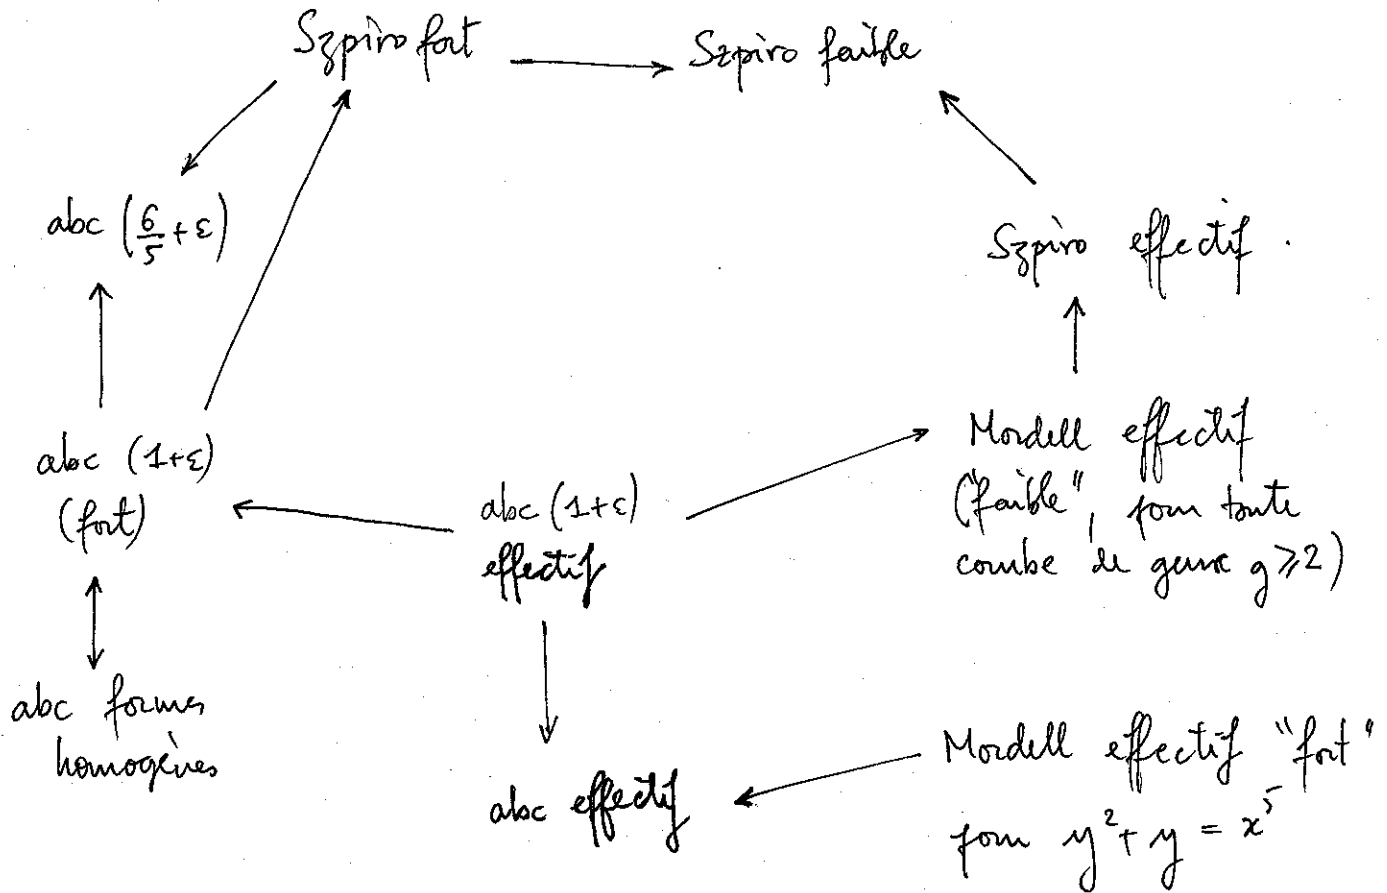 Szpiro fort
Szpiro faible
abc (6/5 + ε)
Szpiro effectif.
abc (1+ε)
(fort)
abc (1+ε)
effectif
Mordell effectif
("faible", pour toute
courbe de genre g ≥ 2)
abc formes
homogènes
abc effectif
Mordell effectif "fort"
pour y² + y = x⁵